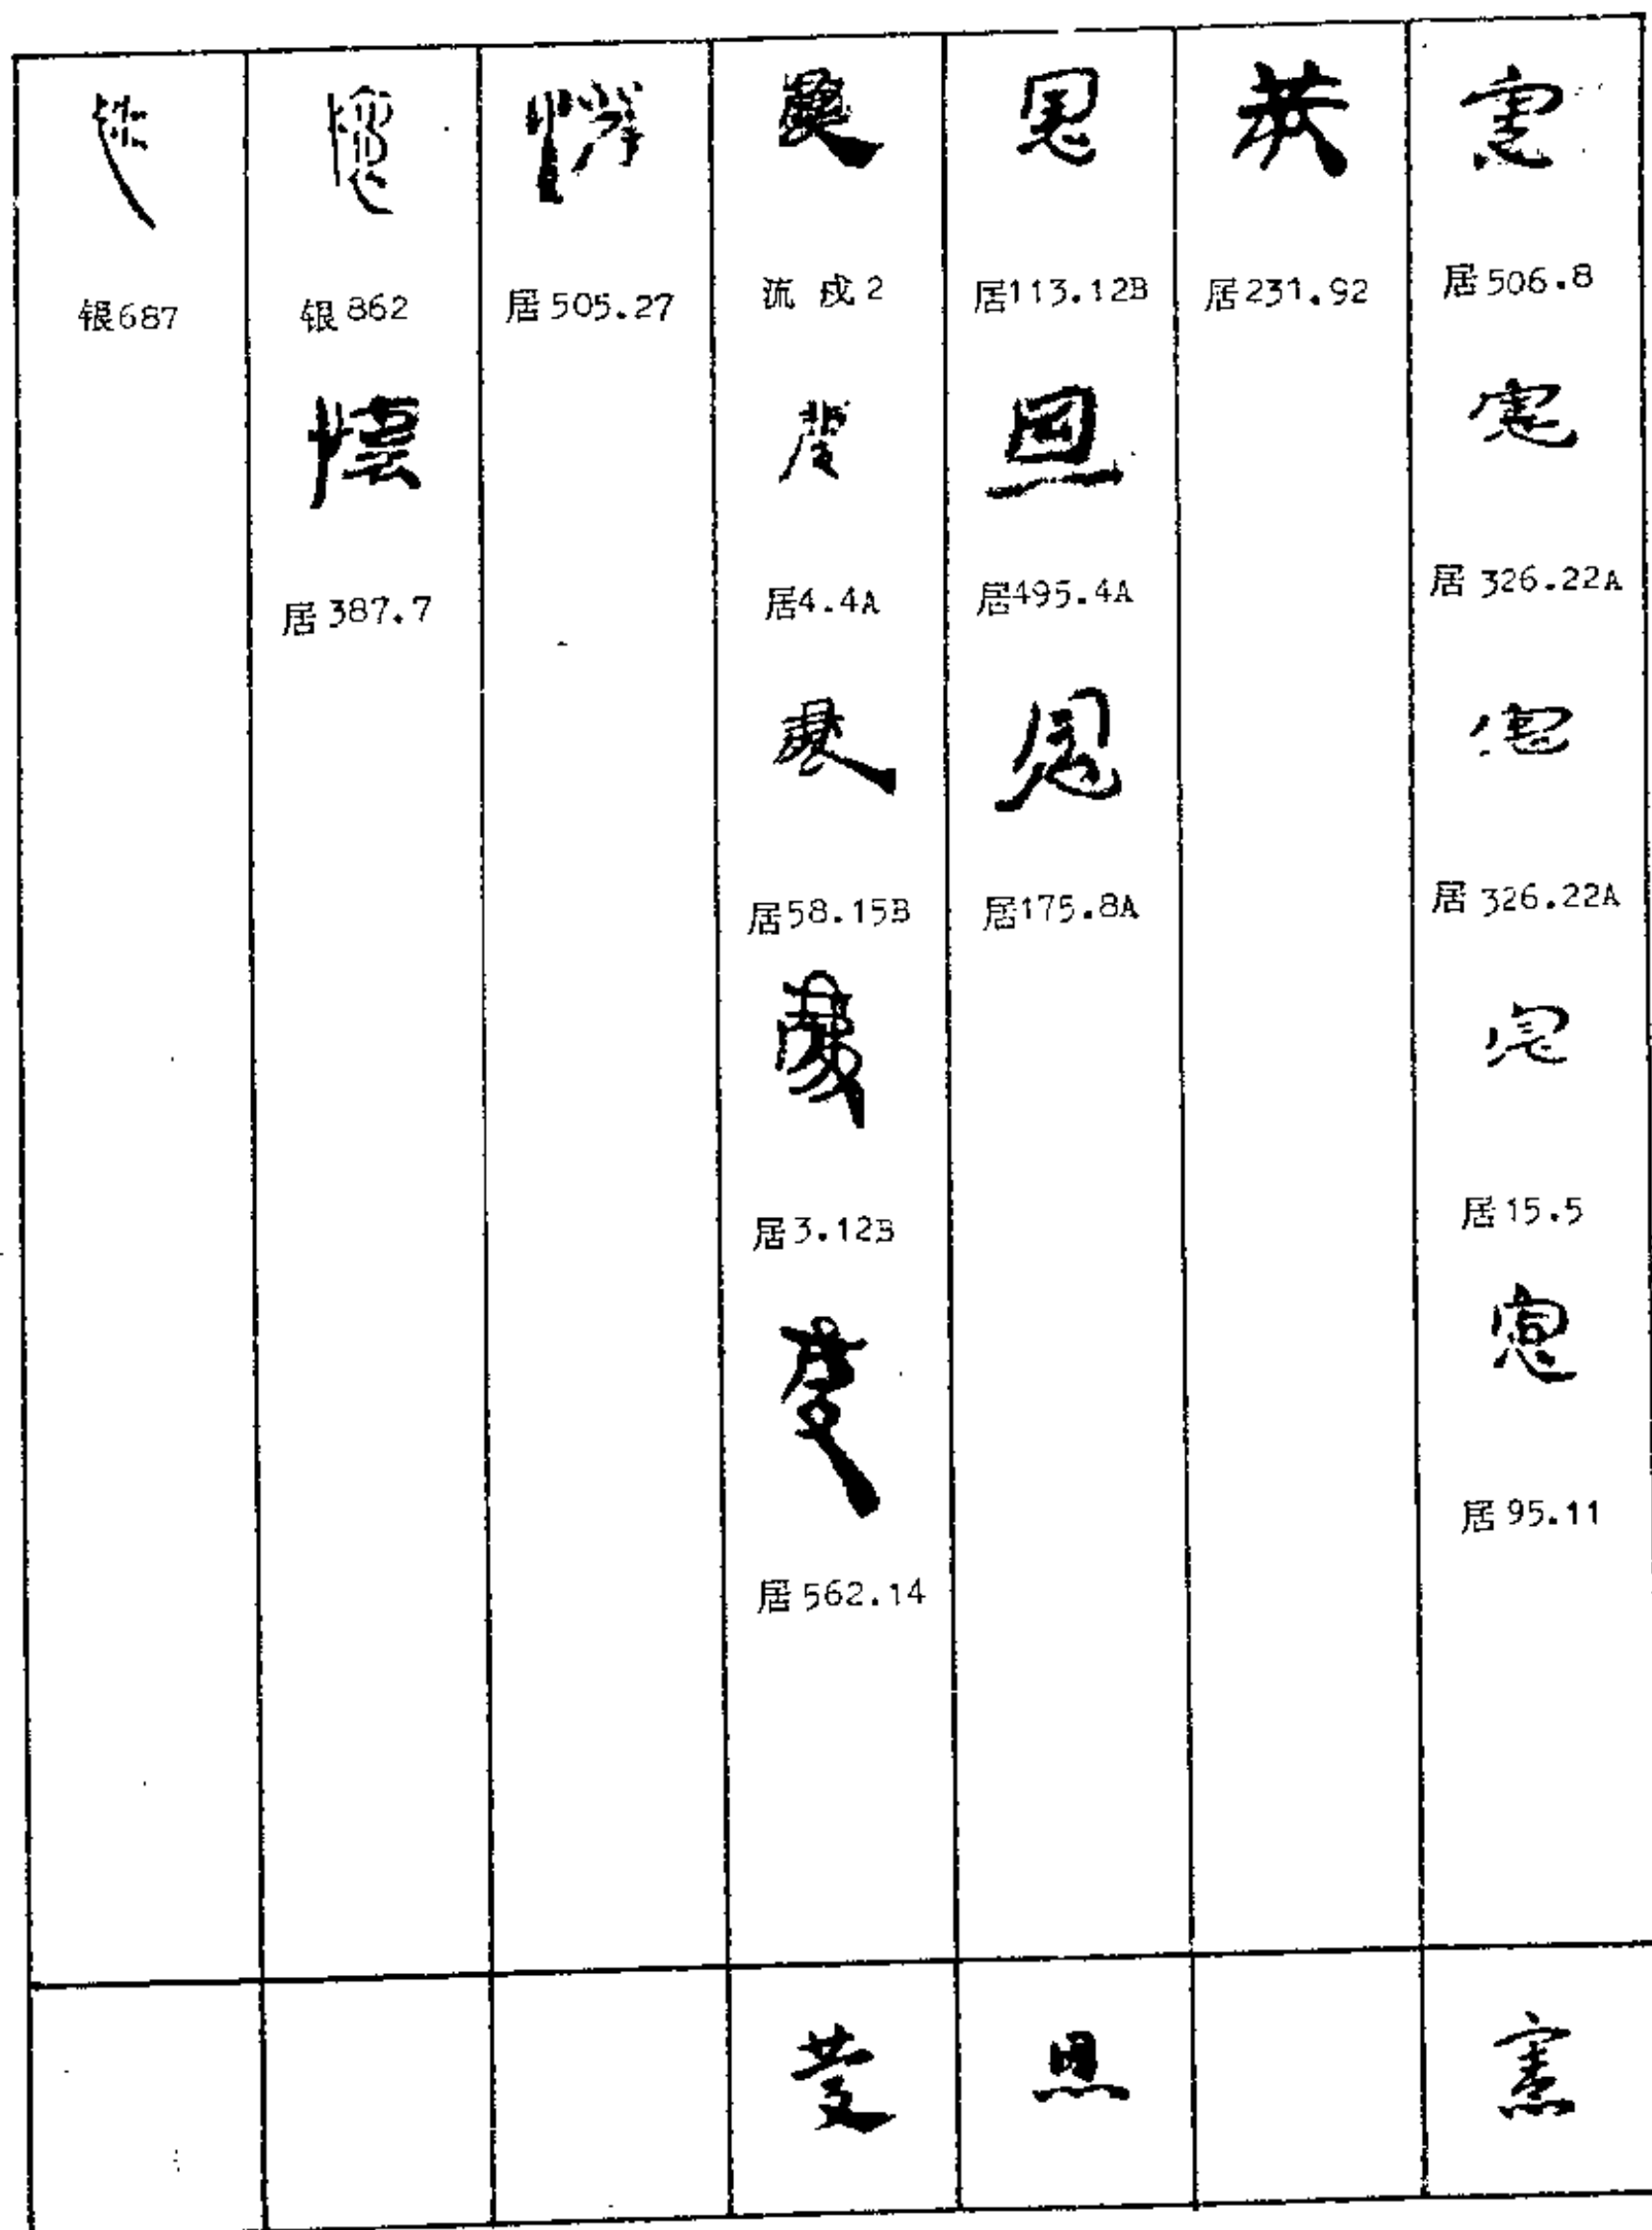 憲
居506.8
憲
居326.22A
憲
居326.22A
憲
居15.5
憲
居95.11
憲
恭
居231.92
恩
居113.12B
恩
居495.4A
恩
居175.8A
恩
慶
流 戍2
慶
居4.4A
慶
居58.15B
慶
居3.12B
慶
居562.14
慶
居505.27
银862
居387.7
银687